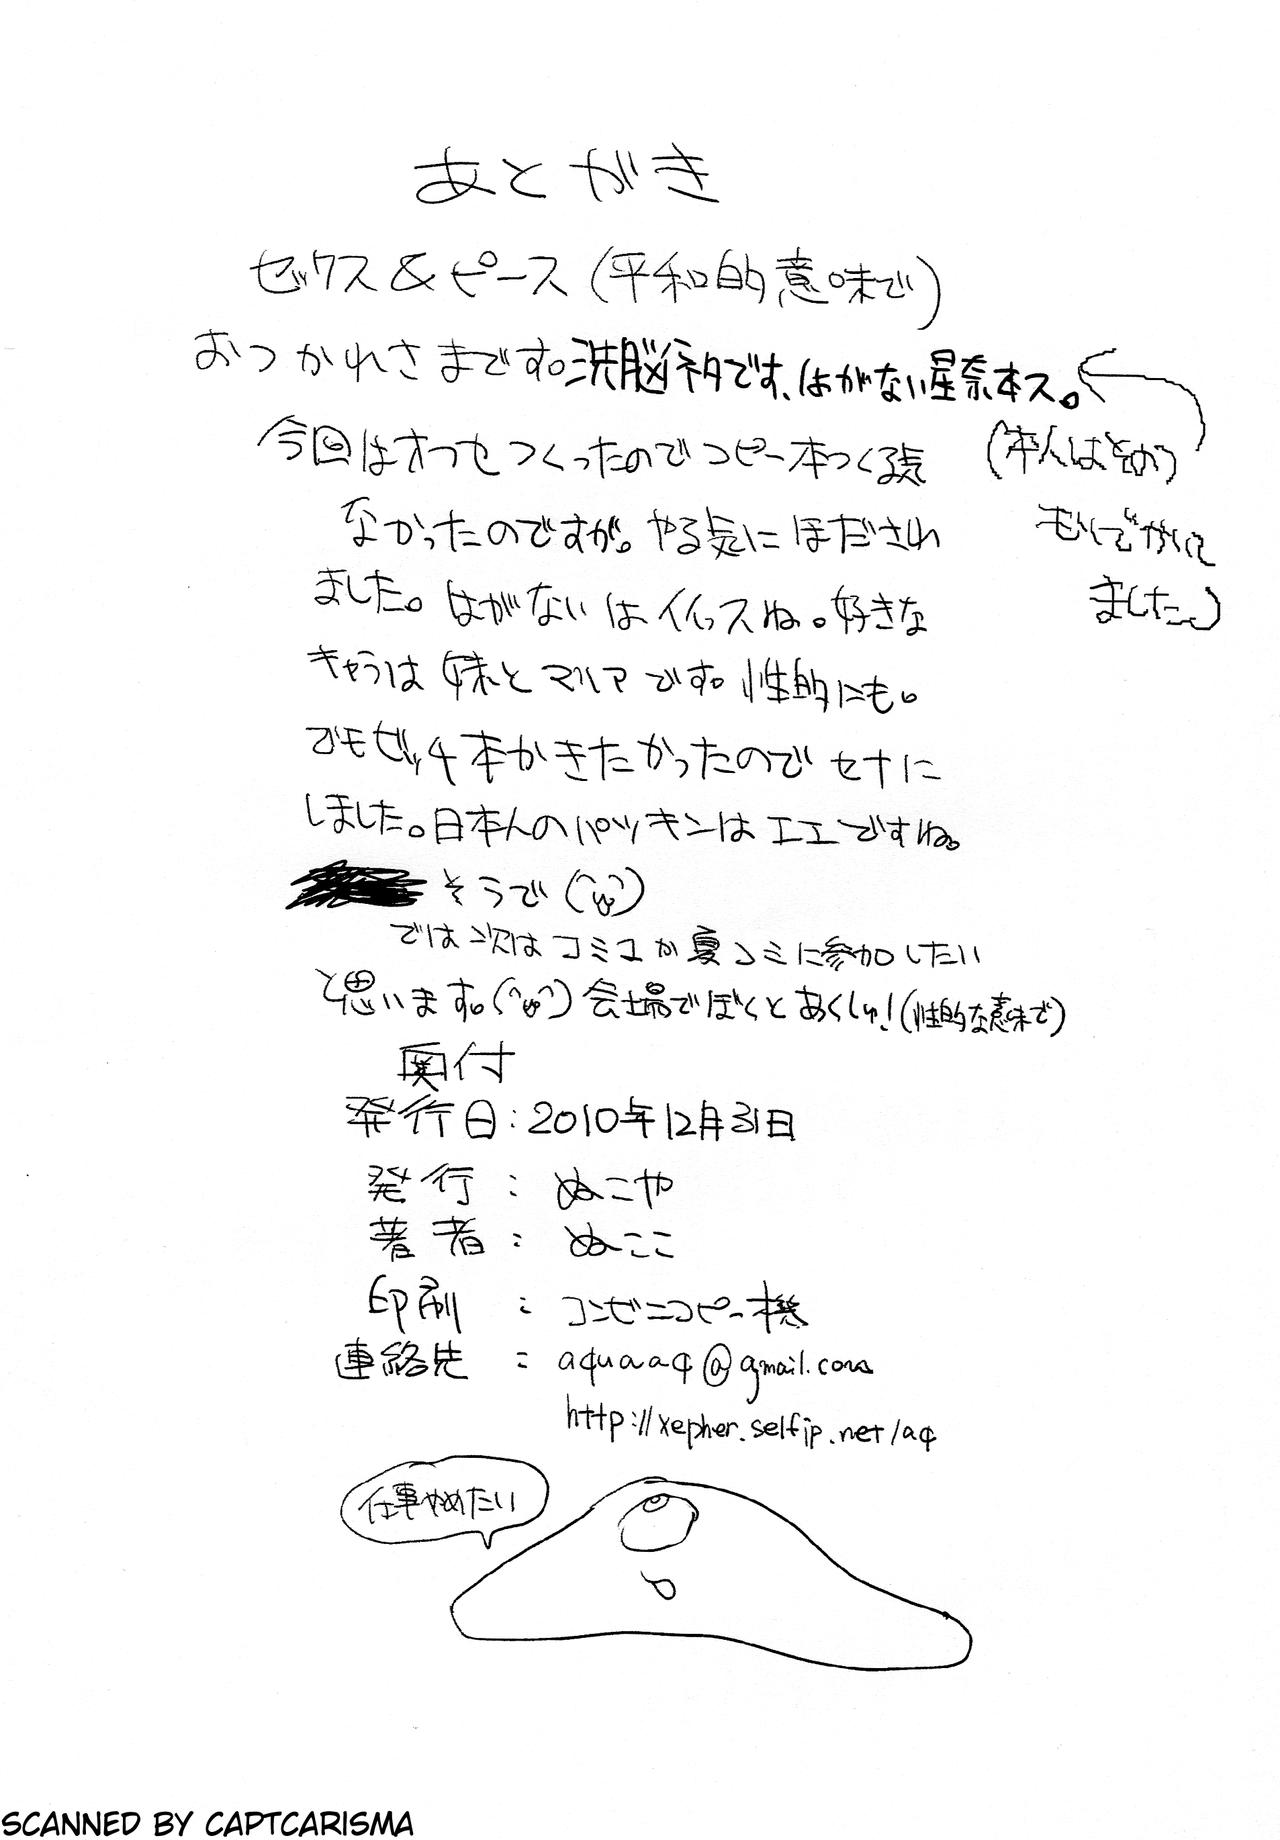 あとがき
セックス&ピース(平和的意味で)
おつかれさまです。洗脳ネタです、はがない星奈本ス。
(本人はその
つもりでかいて
ました。)
今回はオフセつくったのでコピー本つくる気
なかったのですが。やる気にほだされ
ました。はがないはイイっスね。好きな
キャラは妹とマリアです。性的にも。
でもビッチ本かきたかったのでセナに
しました。日本人のパツキンはエエですね。
そうで
では次はコミコか夏コミに参加したい
と思います。(^ω^)会場でぼくとあくしゅ!(性的な意味で)
奥付
発行日:2010年12月31日
発行:ぬこや
著者:ぬここ
印刷:コンビニコピー機
連絡先:aquaaq@gmail.com
http://xepher.selfip.net/aq
仕事やめたい
SCANNED BY CAPTCARISMA